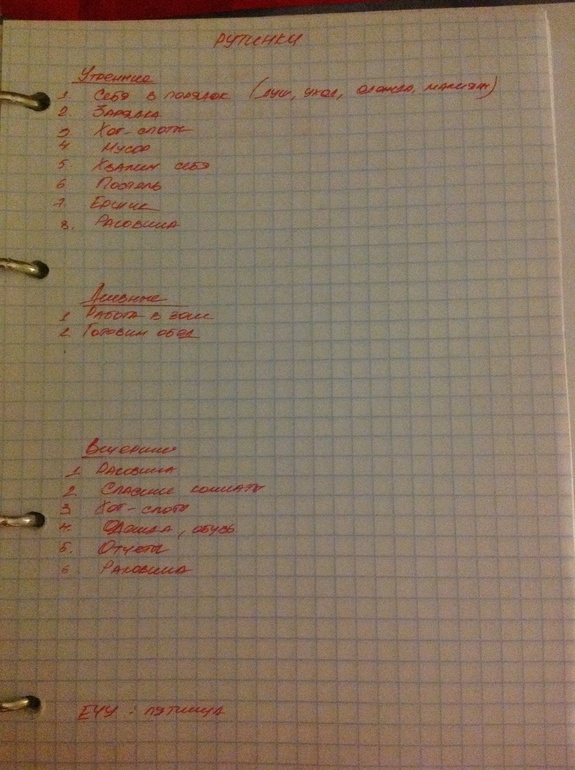 РУТИНКИ
Утренние
1. Себя в порядок (душ, уход, одежда, макияж)
2. Зарядка
3 Хот-споты
4 Мусор
5. Хвалим себя
6 Постель
7. Ершик
8. Раковина
Дневные
1 Работа в зоне
2. Готовим обед
Вечерние
1 Раковина
2 Спасение комнаты
3 Хот-споты
4. Одежда, обувь
5. Отчеты
6 Раковина
ЕЧУ - пятница